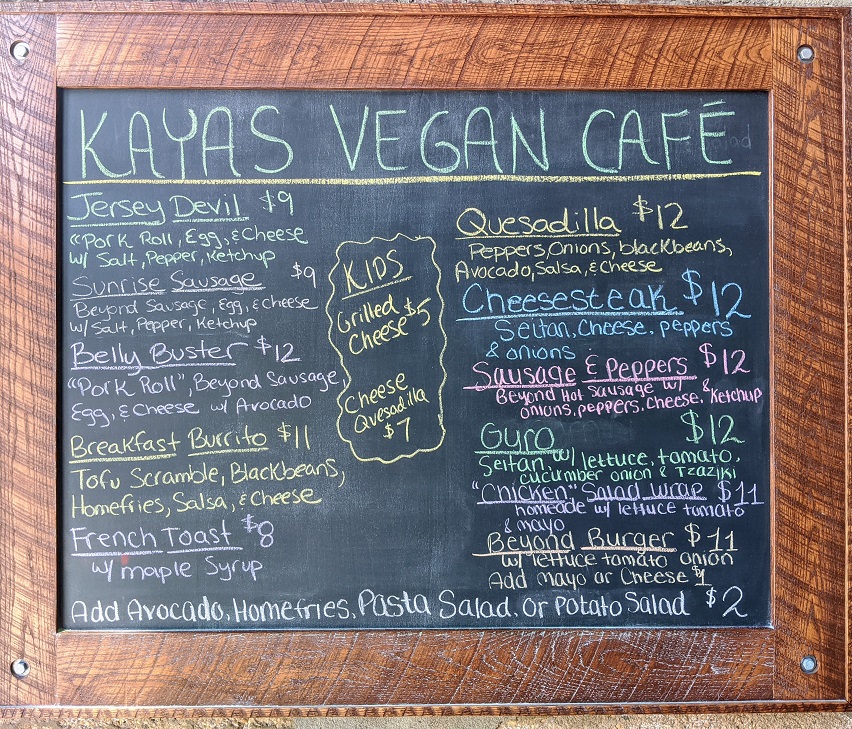 KAYAS VEGAN CAFÉ
Jersey Devil $9
"Pork Roll, Egg, & Cheese
w/ Salt, Pepper, Ketchup
Sunrise Sausage $9
Beyond Sausage, Egg, & cheese
w/ Salt, Pepper, Ketchup
Belly Buster $12
"Pork Roll", Beyond Sausage,
Egg, & Cheese w/ Avocado
Breakfast Burrito $11
Tofu Scramble, Blackbeans,
Homefries, Salsa, & Cheese
French Toast $8
w/ maple Syrup
KIDS
Grilled $5
Cheese
Cheese
Quesadilla
$7
Quesadilla $12
Peppers, Onions, blackbeans,
Avocado, Salsa, & cheese
Cheesesteak $12
Seitan, Cheese, peppers
& onions
Sausage & Peppers $12
Beyond Hot Sausage w/
onions, peppers, cheese, & Ketchup
Gyro $12
Seitan w/ lettuce, tomato,
cucumber onion & Tzaziki
"Chicken" Salad Wrap $11
homeade w/ lettuce tomato
& mayo
Beyond Burger $11
w/ lettuce tomato onion
Add mayo or Cheese $1
Add Avocado, Homefries, Pasta Salad, or Potato Salad $2